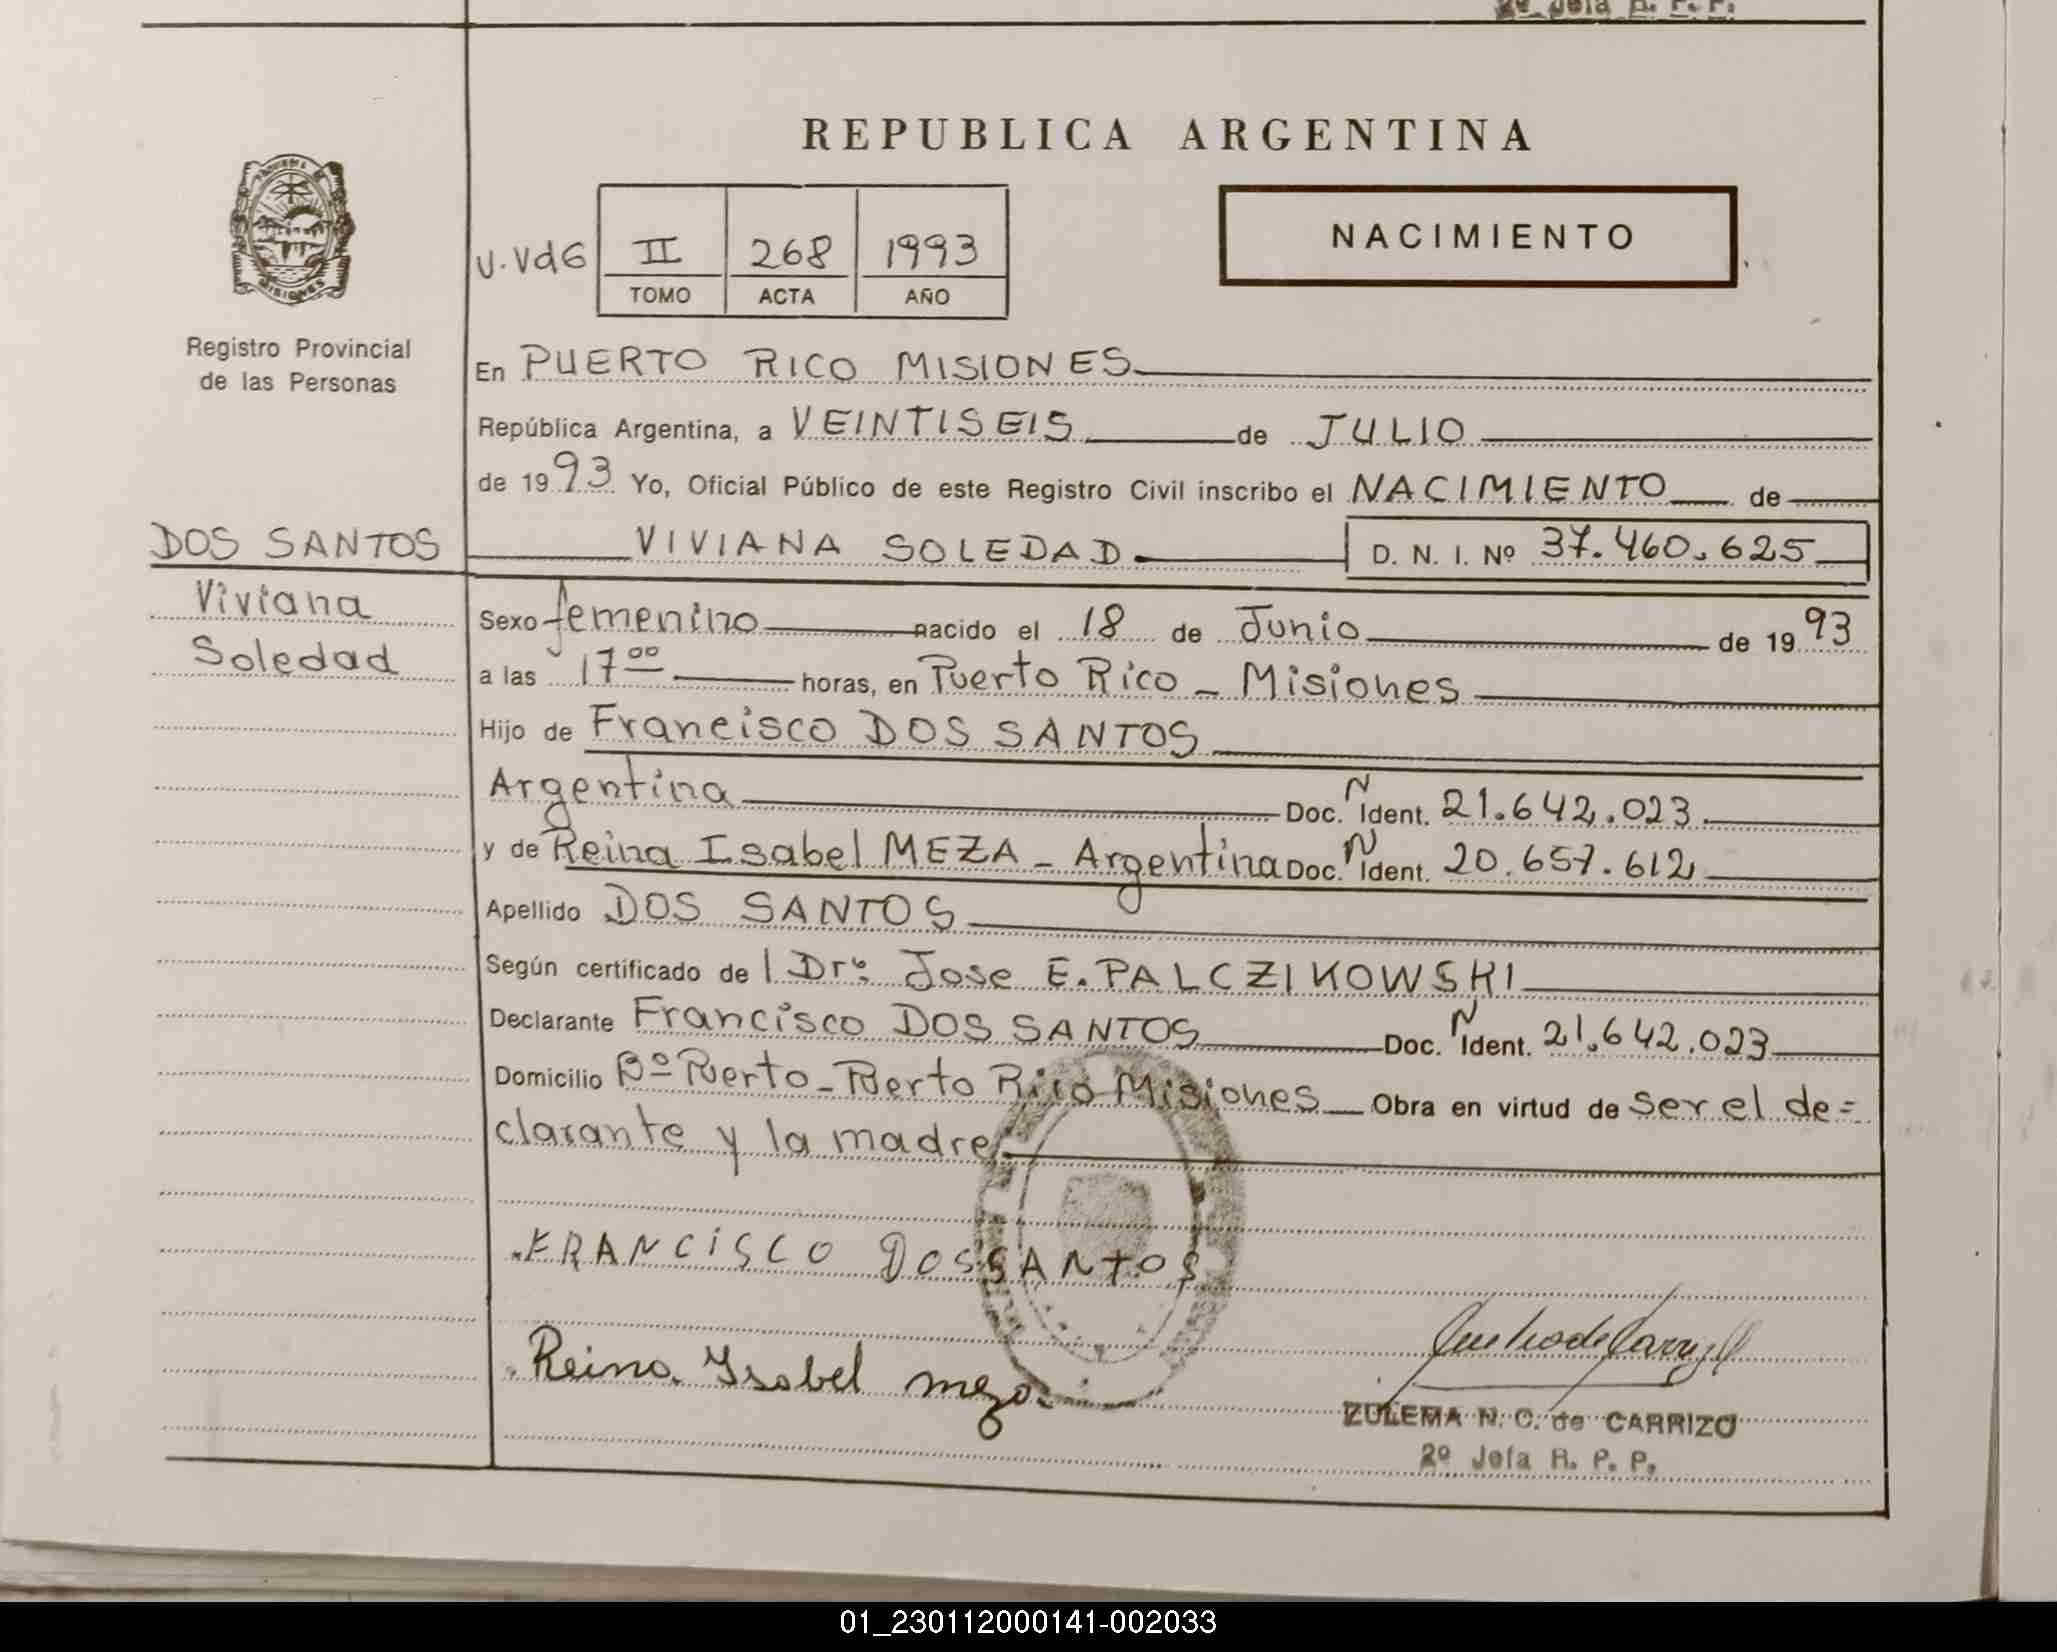 2º Jefa R. P. P.
REPUBLICA ARGENTINA
NACIMIENTO
U.VdG II 268 1993
TOMO ACTA AÑO
MISIONES
Registro Provincial
de las Personas
En PUERTO RICO MISIONES
República Argentina, a VEINTISEIS de JULIO
de 1993 Yo, Oficial Público de este Registro Civil inscribo el NACIMIENTO de
DOS SANTOS VIVIANA SOLEDAD D. N. I. Nº 37.460.625
Viviana
Soledad
Sexo femenino nacido el 18 de Junio de 1993
a las 17 00 horas, en Puerto Rico - Misiones
Hijo de Francisco DOS SANTOS
Argentina Doc. N Ident. 21.642.023
y de Reina Isabel MEZA - Argentina Doc. N Ident. 20.657.612
Apellido DOS SANTOS
Según certificado de l Dr. Jose E. PALCZIKOWSKI
Declarante Francisco DOS SANTOS Doc. N Ident. 21.642.023
Domicilio Bº Puerto - Puerto Rico Misiones Obra en virtud de ser el de=
clarante y la madre
FRANCISCO DOS SANTOS
Reina Isabel meza
ZULEMA N. C. de CARRIZO
2º Jefa R. P. P.
01_230112000141-002033